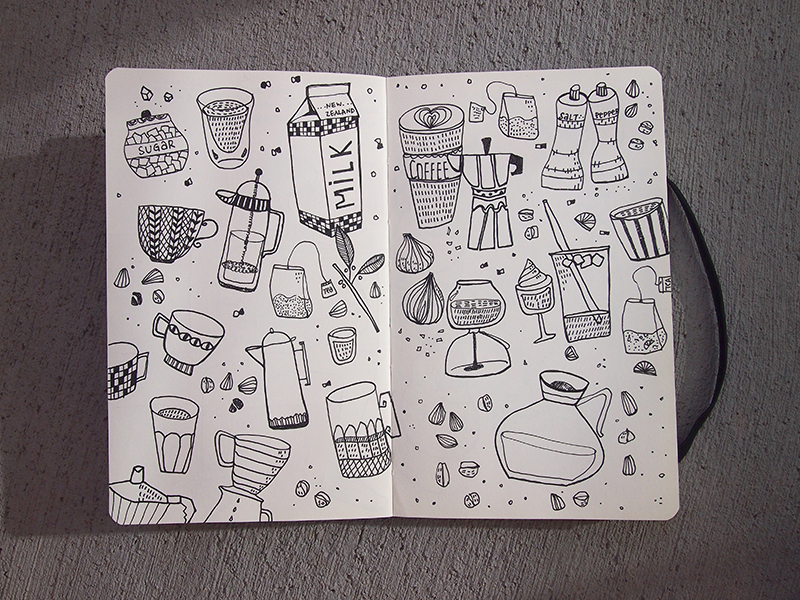 SUGAR
-NEW-
ZEALAND
MiLK
TEA
COFFEE
SALT
PEPPER